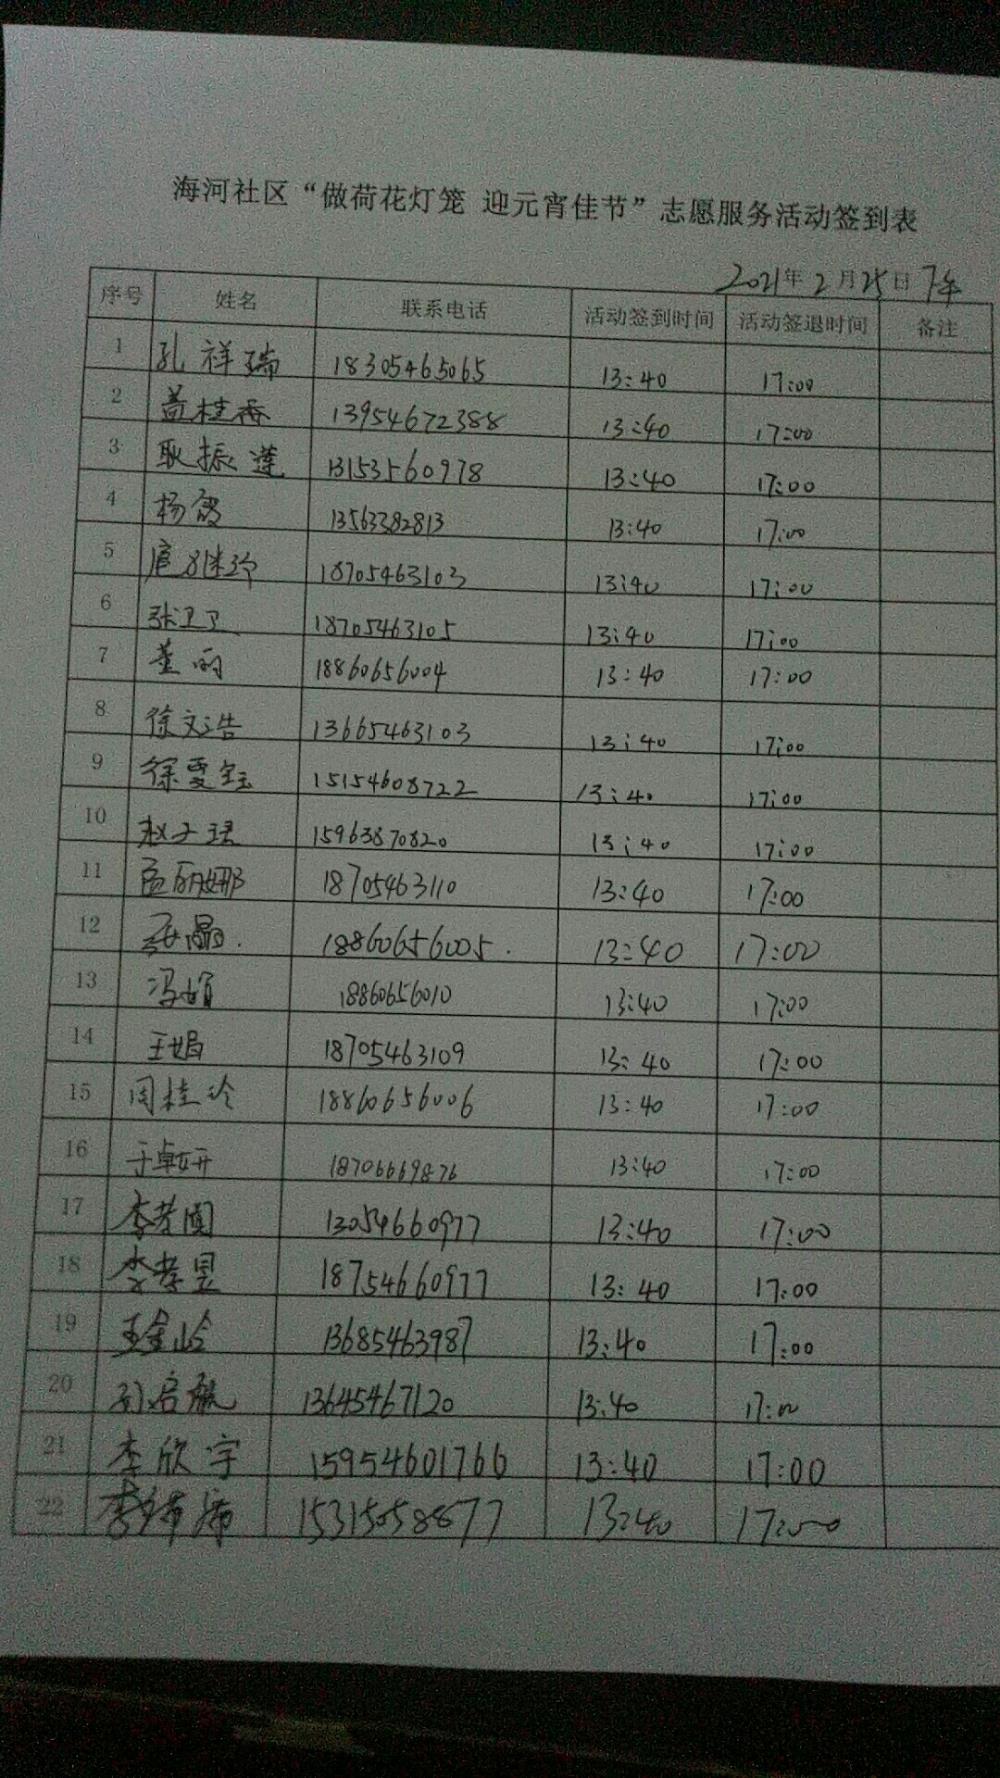 海河社区“做荷花灯笼 迎元宵佳节”志愿服务活动签到表
2021年2月25日 下午
序号 姓名 联系电话 活动签到时间 活动签退时间 备注
1 孔祥瑞 18305465065 13:40 17:00
2 盖桂香 13954672388 13:40 17:00
3 耿振莲 13153560978 13:40 17:00
4 杨鸽 13563382813 13:40 17:00
5 18705463103 13:40 17:00
6 张卫卫 18705463105 13:40 17:00
7 董丽 18860656004 13:40 17:00
8 徐文浩 13665463103 13:40 17:00
9 徐雯钰 15154608722 13:40 17:00
10 赵子珺 15963870820 13:40 17:00
11 孟丽娜 18705463110 13:40 17:00
12 18860656005. 13:40 17:00
13 冯娟 18860656010 13:40 17:00
14 王娟 18705463109 13:40 17:00
15 周桂玲 18860656006 13:40 17:00
16 于卓妍 18706669876 13:40 17:00
17 13054660977 13:40 17:00
18 18754660977 13:40 17:00
19 王金岭 13685463987 13:40 17:00
20 刘启航 13645467120 13:40 17:00
21 李欣宇 15954601766 13:40 17:00
22 15315058877 13:40 17:00